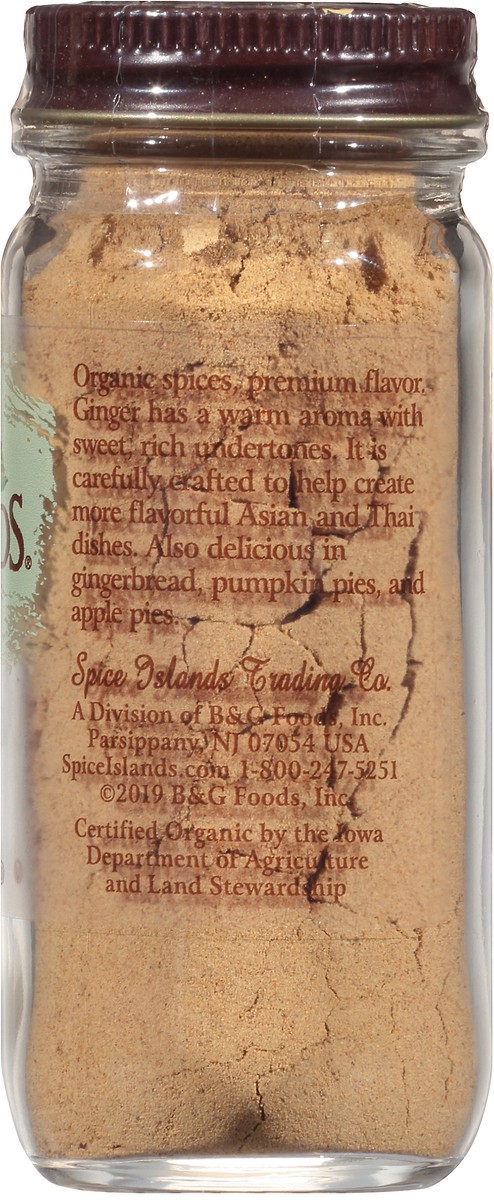 Organic spices, premium flavor.
Ginger has a warm aroma with
sweet, rich undertones. It is
carefully crafted to help create
more flavorful Asian and Thai
dishes. Also delicious in
gingerbread, pumpkin pies, and
apple pies.
Spice Islands Trading Co.
A Division of B&G Foods, Inc.
Parsippany, NJ 07054 USA
SpiceIslands.com 1-800-247-5251
©2019 B&G Foods, Inc.
Certified Organic by the Iowa
Department of Agriculture
and Land Stewardship